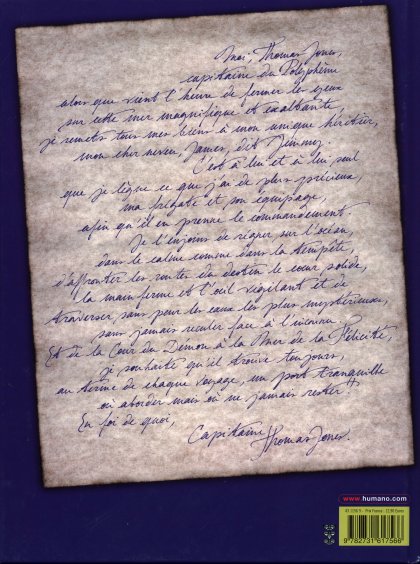 Moi, Thomas Jones,
capitaine du Polyphème
alors que vient l'heure de fermer les yeux
sur cette mer magnifique et exaltante,
je remets tous mes biens à mon unique héritier,
mon cher neveu, James, dit Jimmy.
C'est à lui et à lui seul
que je lègue ce que j'ai de plus précieux,
ma frégate et son équipage,
afin qu'il en prenne le commandement.
Je l'enjoins de régner sur l'océan,
dans le calme comme dans la tempête,
d'affronter les routes du destin le cœur solide,
la main ferme et l'œil vigilant et de
traverser sans peur les eaux les plus mystérieuses,
sans jamais reculer face à l'inconnu
Et de la Cour du Démon à la Mer de la Félicité,
je souhaite qu'il trouve toujours,
au terme de chaque voyage, un port tranquille
où aborder mais où ne jamais rester !
En foi de quoi,
Capitaine Thomas Jones.
www.humano.com
9 782731 617566